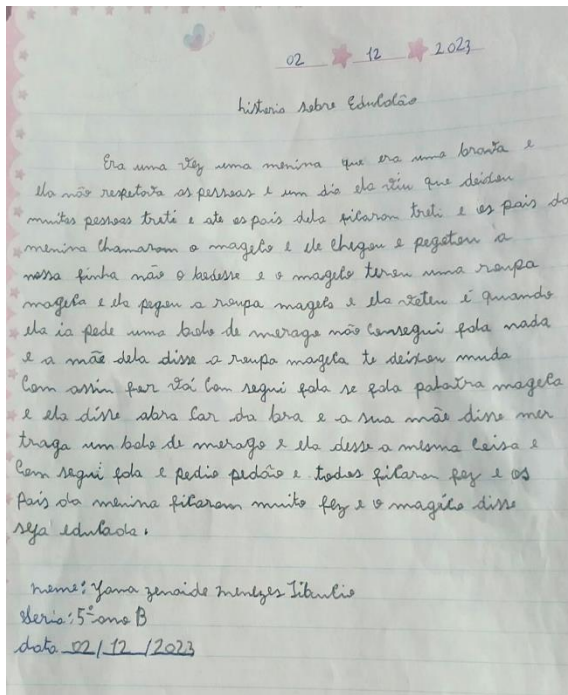 02 12 2023
historia sobre Educacão
Era uma vez uma menina que era uma brava e
ela não respetava as pessoas e um dia ela viu que deixou
muitas pessoas treti e ate os pais dela ficaram treti e os pais da
menina chamaram o magico e ele chegou e pegotou a
nossa finha não o bedesse e o magico tirou uma roupa
magica e ela pegou a roupa magica e ela vetiu e quando
ela ia pede uma bolo de morago não consegui fala nada
e a mãe dela disse a roupa magica te deixou muda
Com assin for vai Com segui fala se fala palavra magica
e ela disse abra Car da bra e a sua mãe disse mer
traga um bolo de morago e ela desse a mesma Coisa e
Com segui fala e pedio pedão e todos ficaram fez e os
pais da menina ficaram muito fez e o magico disse
seja educada.
nome: Yana zenaide menezes Tibucio
Serie: 5º ano B
data 02/12/2023